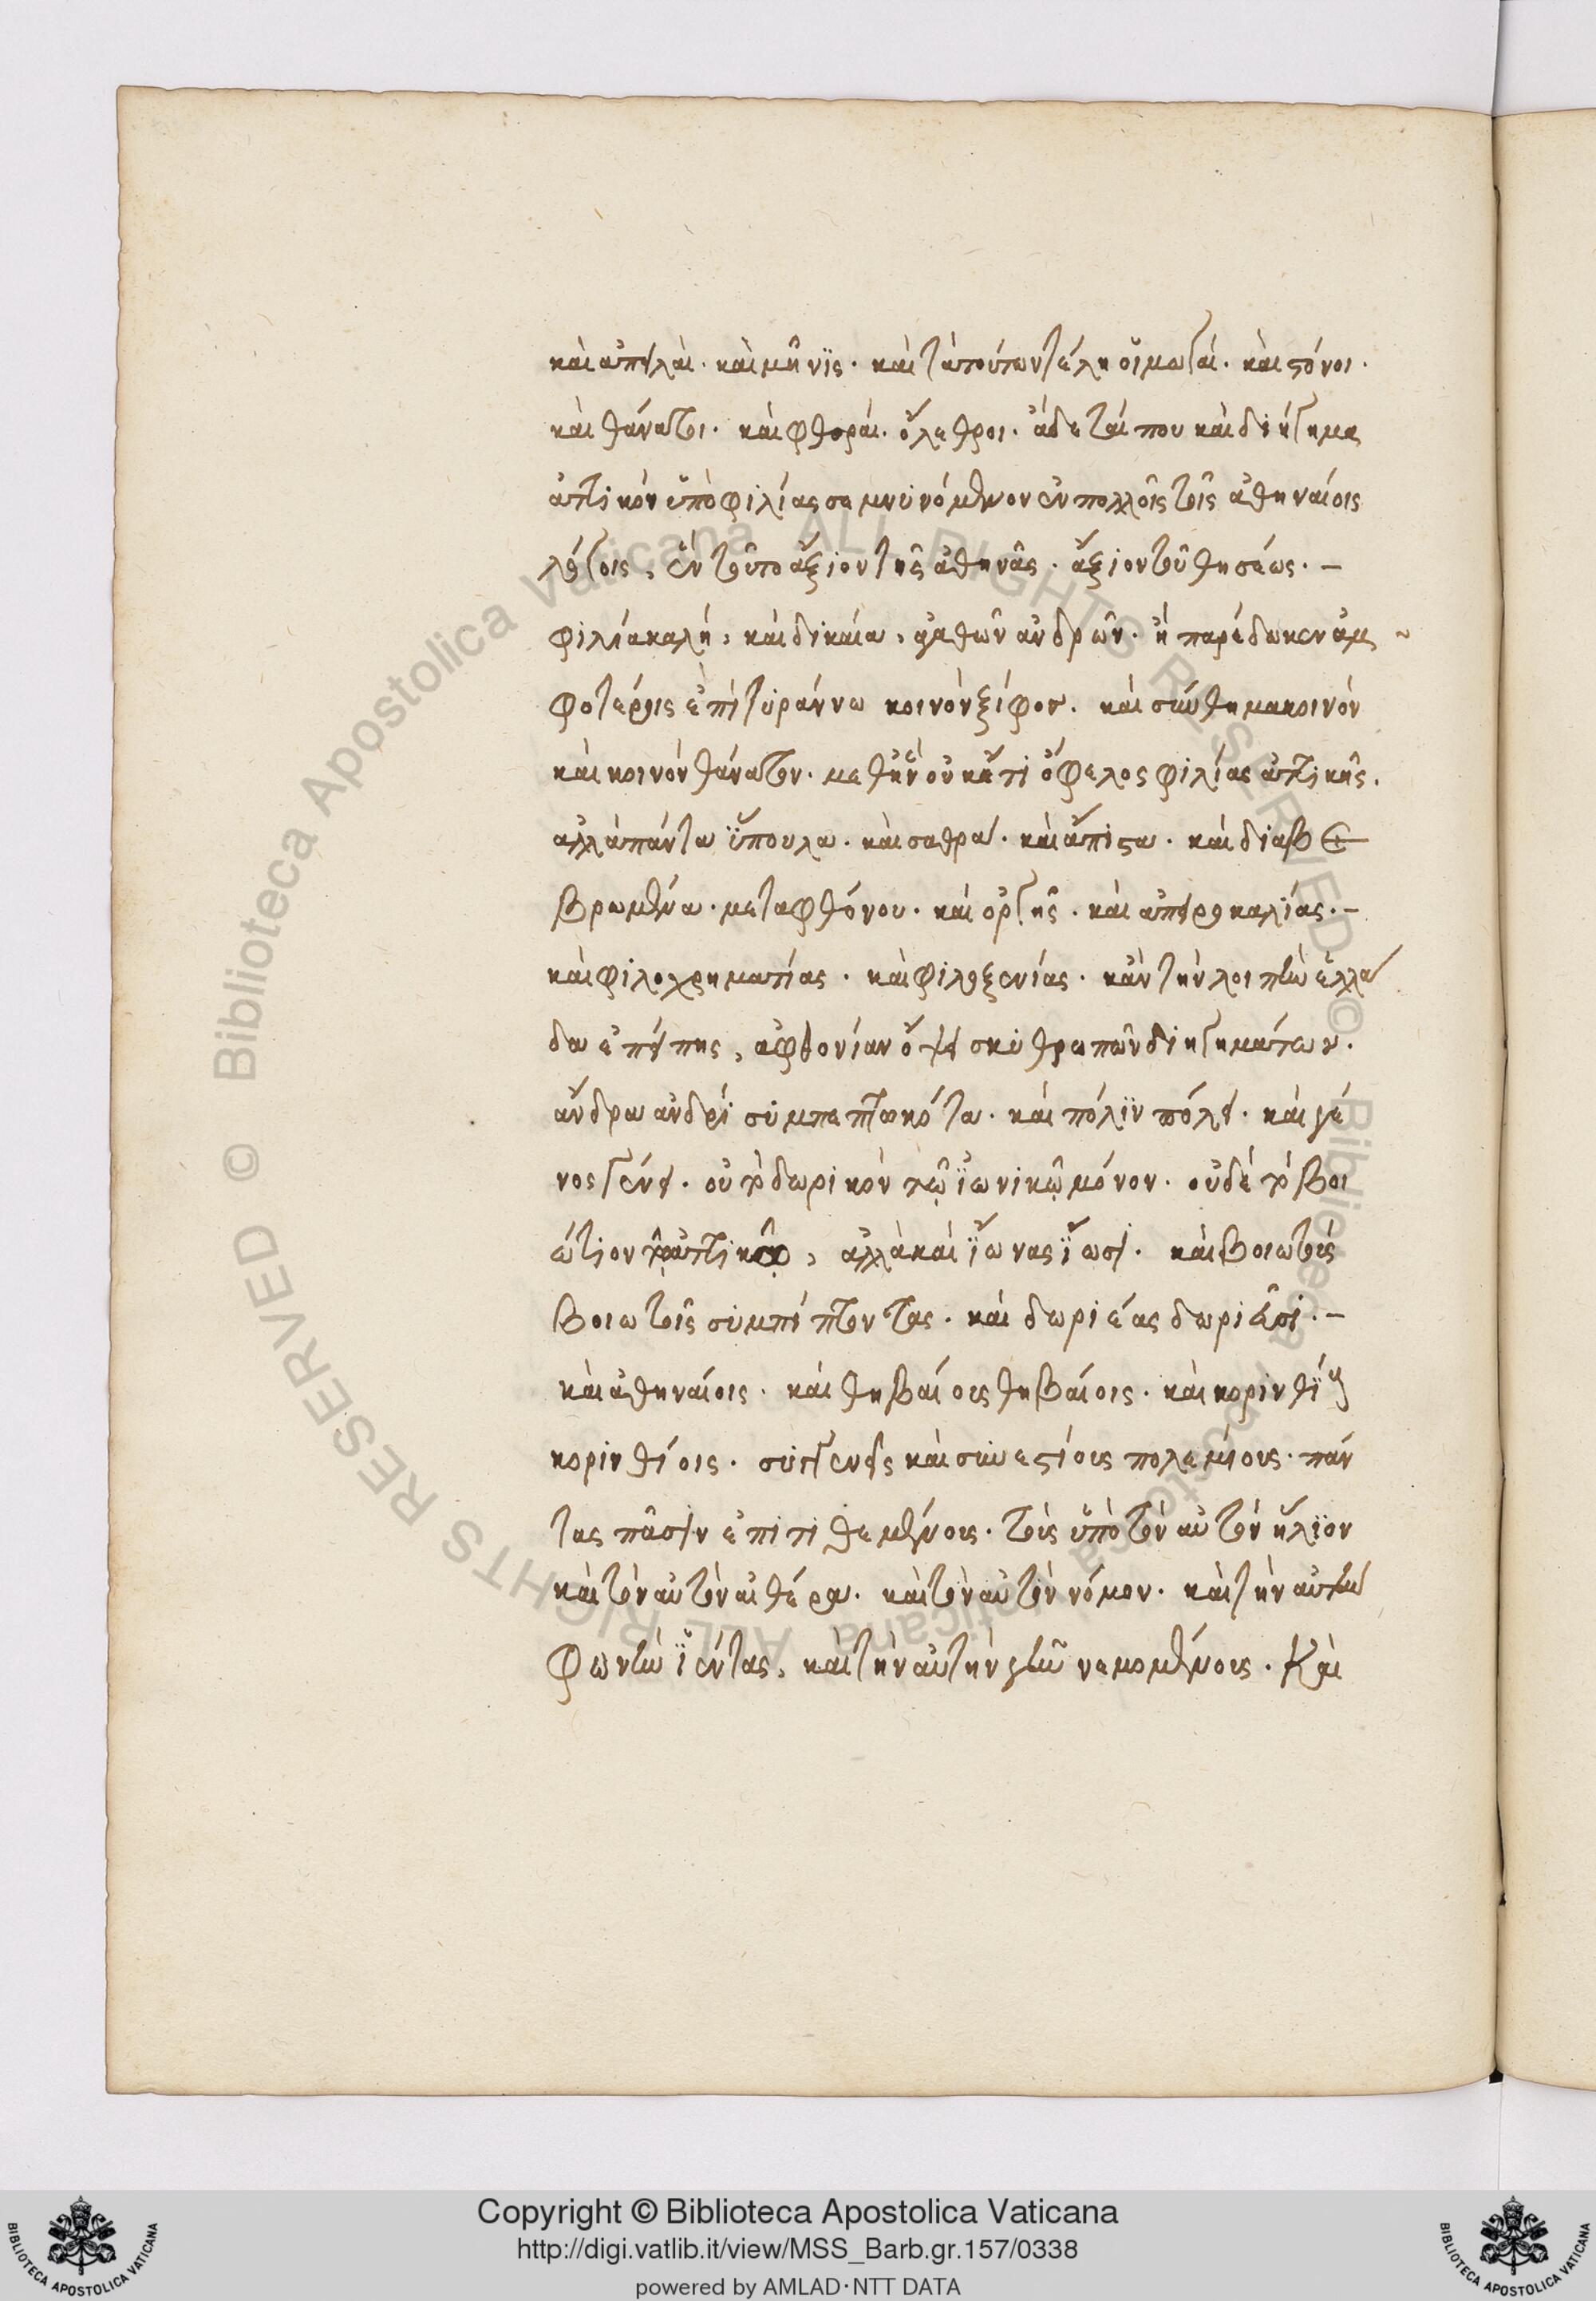 καὶ ἀπειλαὶ. καὶ μῆνϊς. καὶ τὰ τούτων τέλη οἰμωγαί. καὶ στόνοι.
καὶ θάνατοι. καὶ φθοραί. ὄλεθροι. ἄδεταί που καὶ διήγημα
ἀττικὸν ὑπὸ φιλίας σεμνυνόμενον ἐν πολλοῖς τοῖς ἀθηναίοις
λόγοις, ἓν τοῦτο ἄξιον τῆς ἀθηνᾶς. ἄξιον τοῦ θησέως. –
φιλία καλὴ, καὶ δικαία, ἀγαθῶν ἀνδρῶν. ἣ παρέδωκεν ἀμ
φοτέροις ἐπὶ τυράννω κοινὸν ξίφος. καὶ σύνθημα κοινὸν
καὶ κοινὸν θάνατον. μεθ' ἣν οὐκ ἔτι ὄφελος φιλίας ἀττικῆς.
ἀλλὰ πάντα ὕπουλα. καὶ σαθρά. καὶ ἄπιστα. καὶ διαβε
βρωμένα. μετὰ φθόνου. καὶ ὀργῆς. καὶ ἀπειροκαλίας. –
καὶ φιλοχρηματίας. καὶ φιλοξενίας. κἂν τὴν λοιπὴν ἑλλά
δα ἐπίῃς, ἀφθονίαν ὄψει σκυθρωπῶν διηγημάτων.
ἄνδρα ἀνδρὶ συμπεπτωκότα. καὶ πόλϊν πόλει. καὶ γέ
νος γένει. οὐ τὸ δωρικὸν τῷ ἰωνικῷ μόνον. οὐδὲ τὸ βοι
ώτιον τῷ ἀττικῷ, ἀλλὰ καὶ ἴωνας ἴωσι. καὶ βοιωτοὺς
βοιωτοῖς συμπίπτοντας. καὶ δωριέας δωριεῦσι. –
καὶ ἀθηναίοις. καὶ θηβαίους θηβαίοις. καὶ κορινθίους
κορινθίοις. συγγενεῖς καὶ συνεστίους πολεμίους. πάν
τας πᾶσιν ἐπιτιθεμένους. τοὺς ὑπὸ τὸν αὐτὸν ἥλϊον
καὶ τὸν αὐτὸν αἰθέρα. καὶ τὸν αὐτὸν νόμον. καὶ τὴν αὐτὴν
φωνὴν ἱέντας, καὶ τὴν αὐτὴν γῆν νεμομένους. Καὶ
Copyright © Biblioteca Apostolica Vaticana
http://digi.vatlib.it/view/MSS_Barb.gr.157/0338
powered by AMLAD·NTT DATA